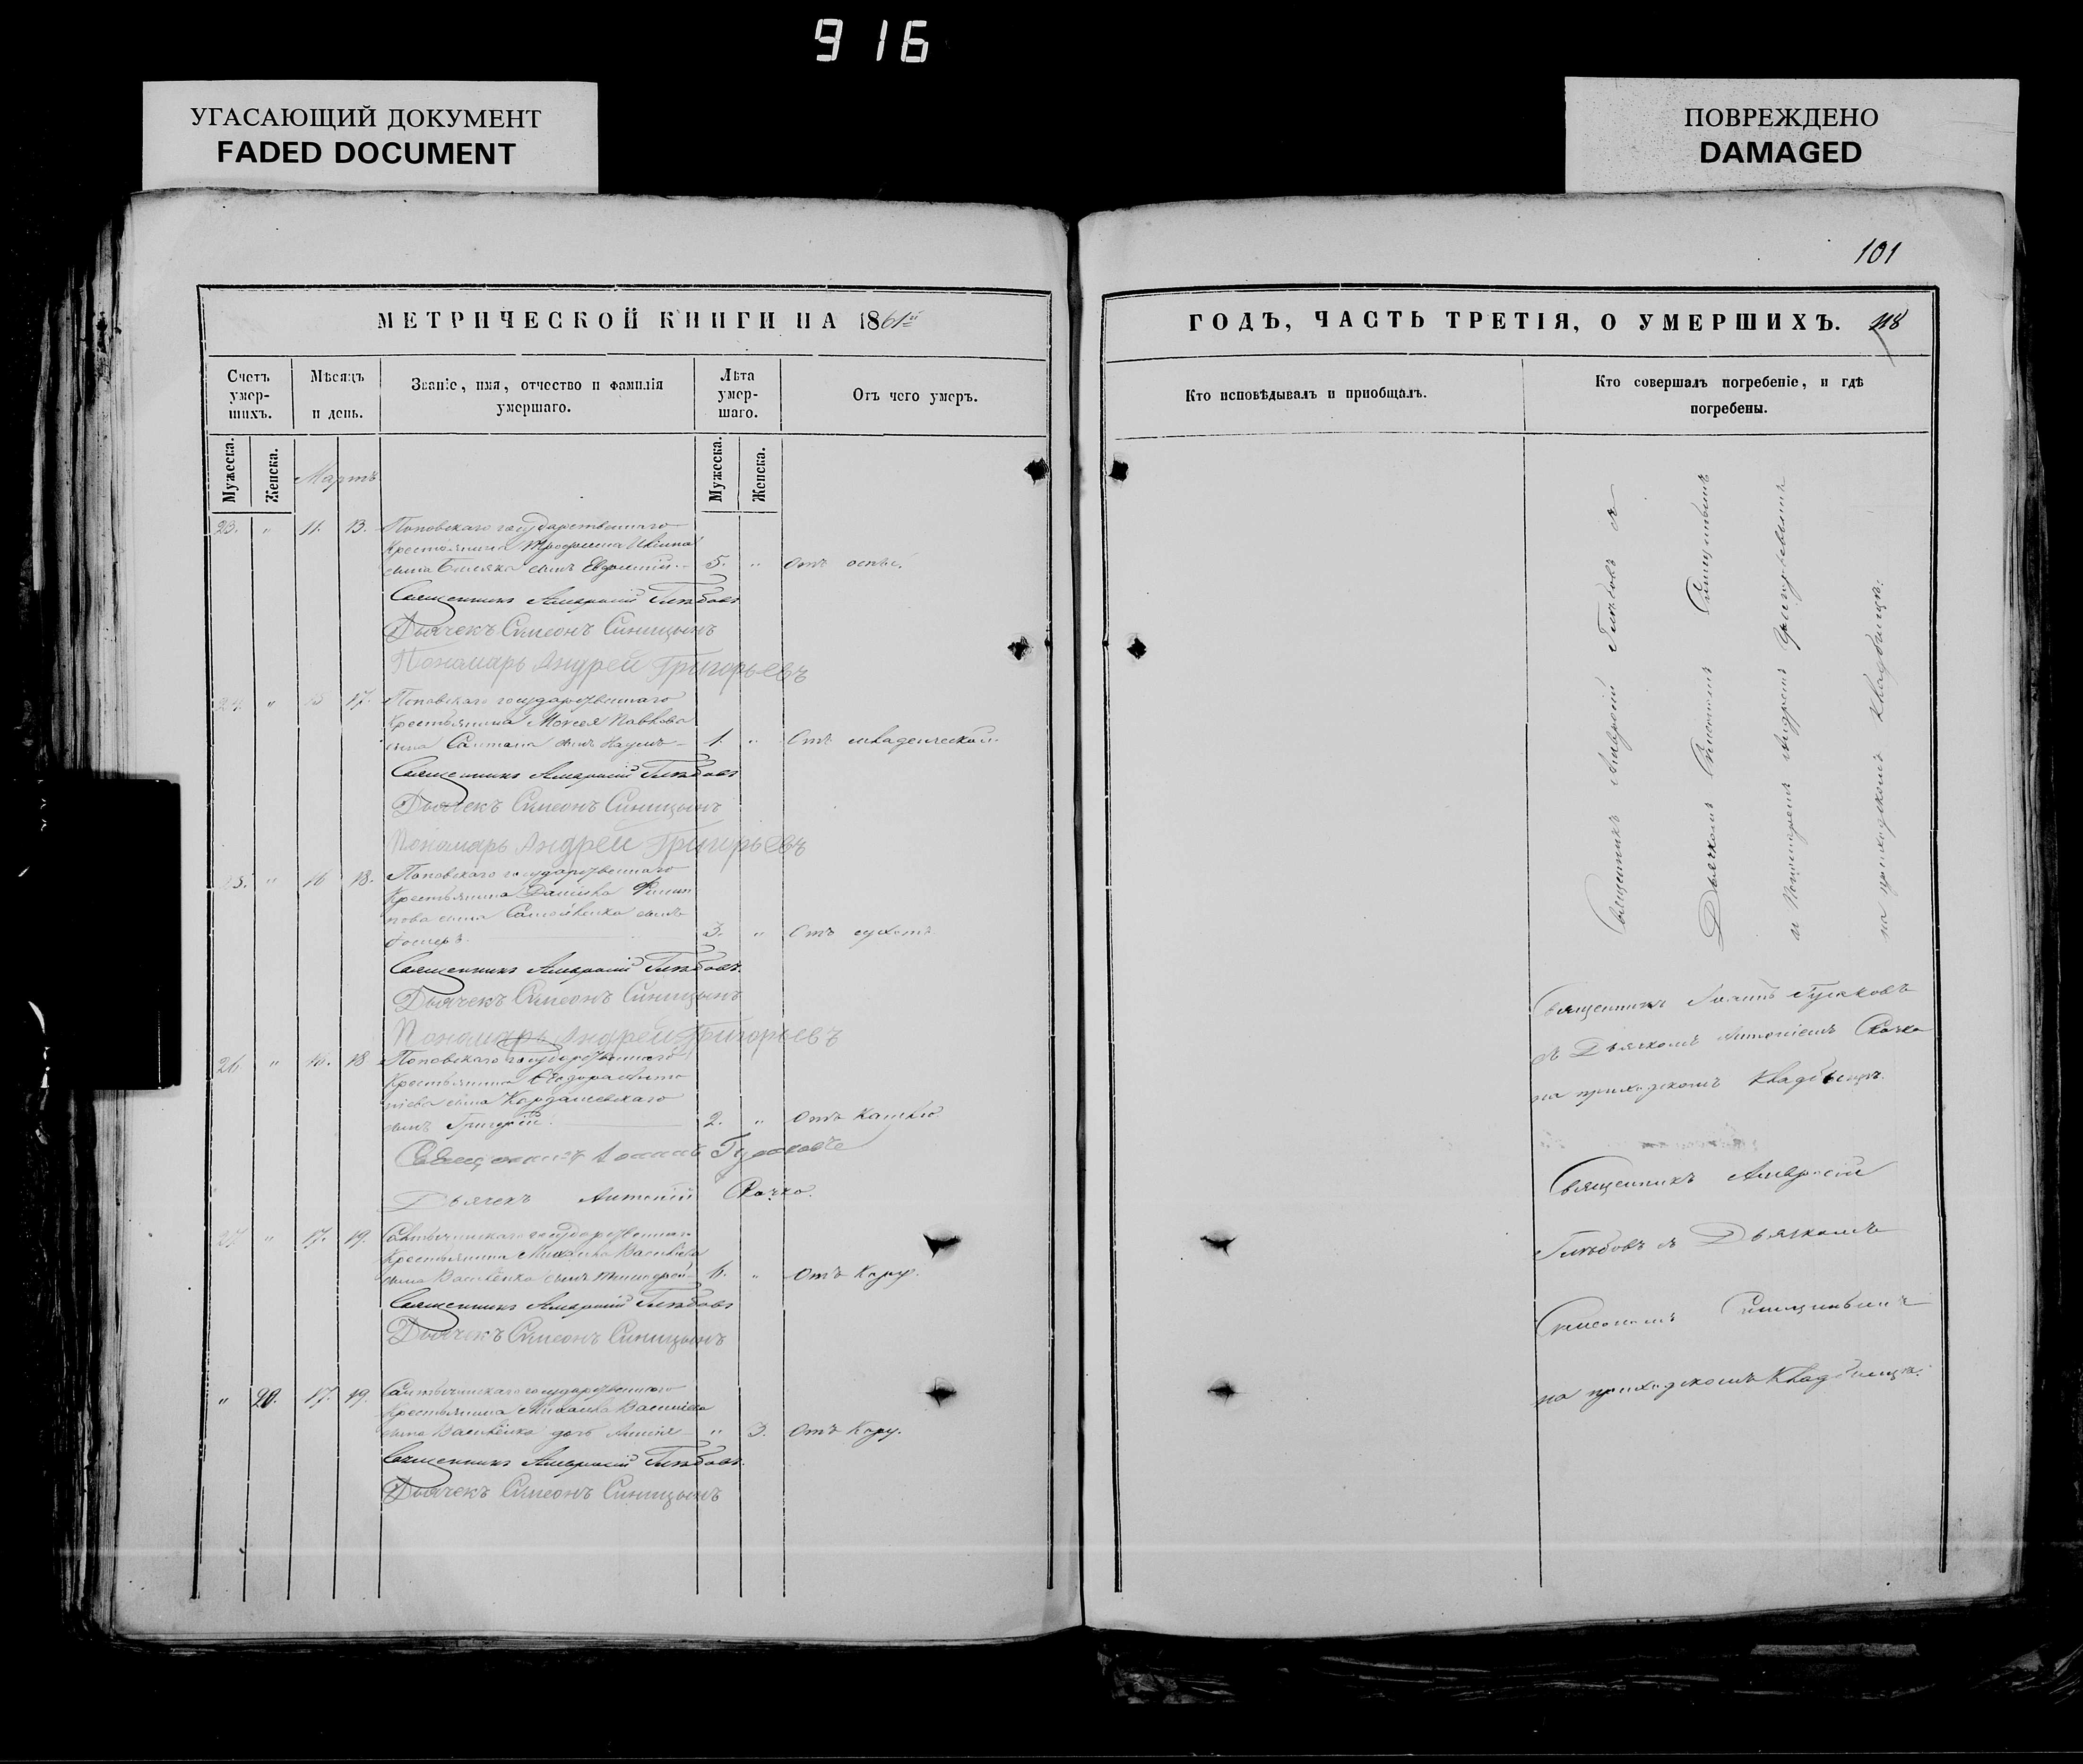 916
УГАСАЮЩИЙ ДОКУМЕНТ
FADED DOCUMENT
ПОВРЕЖДЕНО
DAMAGED
101
МЕТРИЧЕСКОЙ КНИГИ НА 1861й
Счетъ умер-шихъ.
Мѣсяцъ и день.
Званіе, имя, отчество и фамилія умершаго.
Лѣта умер-шаго.
Отъ чего умеръ.
Мужеска.
Женска.
Мужеска.
Женска.
Мартъ
23. " 11. 13. Поповскаго государственнаго
крестьянина Трофима
сына сынъ Евфимій. 5. " Отъ оспы.
Священникъ Амвросій Глѣбовъ
Дьячекъ Симеонъ Синицынъ
Пономарь Андрей Григорьевъ
24. " 15 17. Поповскаго государственнаго
крестьянина Моисея Павлова
сына сынъ Наумъ 1. " Отъ младенческой.
Священникъ Амвросій Глѣбовъ
Дьячекъ Симеонъ Синицынъ
Пономарь Андрей Григорьевъ
25. " 16 18. Поповскаго государственнаго
крестьянина Даніила Филип
пова сына Самойленка сынъ
3. " Отъ
Священникъ Амвросій Глѣбовъ
Дьячекъ Симеонъ Синицынъ
Пономарь Андрей Григорьевъ
26 " 16. 18 Поповскаго государственнаго
крестьянина
сына Кардашевскаго
сынъ Григорій. 2. " Отъ кашлю
Священникъ Іоаннъ Гусаковъ
Дьячекъ Антоній Скачко.
27. " 17. 19. государственнаго
крестьянина Михаила Васильева
сына Василенка сынъ 6. " Отъ кору.
Священникъ Амвросій Глѣбовъ
Дьячекъ Симеонъ Синицынъ
" 20. 17. 19. государственнаго
крестьянина Михаила Васильева
сына Василенка дочь " 3. Отъ кору.
Священникъ Амвросій Глѣбовъ
Дьячекъ Симеонъ Синицынъ
ГОДЪ, ЧАСТЬ ТРЕТІЯ, О УМЕРШИХЪ. 118
Кто исповѣдывалъ и пріобщалъ.
Кто совершалъ погребеніе, и гдѣ
погребены.
Священникъ Амвросій Глѣбовъ съ
Дьячкомъ Симеономъ Синицынымъ
и Пономаремъ Андреемъ Григорьевымъ
на приходскомъ кладбищѣ.
Священникъ Іоаннъ Гусаковъ
съ Дьячкомъ Антоніемъ Скачко
на приходскомъ кладбищѣ.
Священникъ Амвросій
Глѣбовъ съ Дьячкомъ
Симеономъ Синицынымъ
на приходскомъ кладбищѣ.